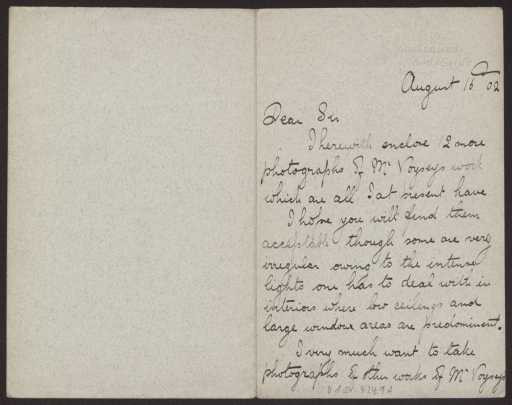 August 16 02
Dear Sir
I herewith enclose 12 more
photographs of Mr Voyseys work
which are all I at present have
I hope you will find them
acceptable though some are very
irregular owing to the intense
lights one has to deal with in
interiors where low ceilings and
large window areas are predominent.
I very much want to take
photographs of other works of Mr Voyseys